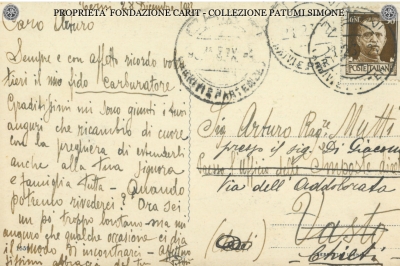 PROPRIETÀ FONDAZIONE CARIT - COLLEZIONE PATUMI SIMONE
Caro Arturo
Sempre e con affetto ricordo vo
tieri il mio fido carburatore.
Graditissimi mi sono giunti i tuoi
auguri che ricambio di cuore
con la preghiera di estenderli
anche alla tua Signora
e famiglia tutta - Quando
potremo rivederci? Ora sei
un po' troppo lontano ma mi
auguro che qualche occasione ci dia
il modo di incontrarci
POSTE ITALIANE
Sig. Arturo Rag. Mutti
presso il sig. Di Giacomo
Presso l'Ufficio delle Imposte
Via dell'Addolorata
Vasto
Chieti